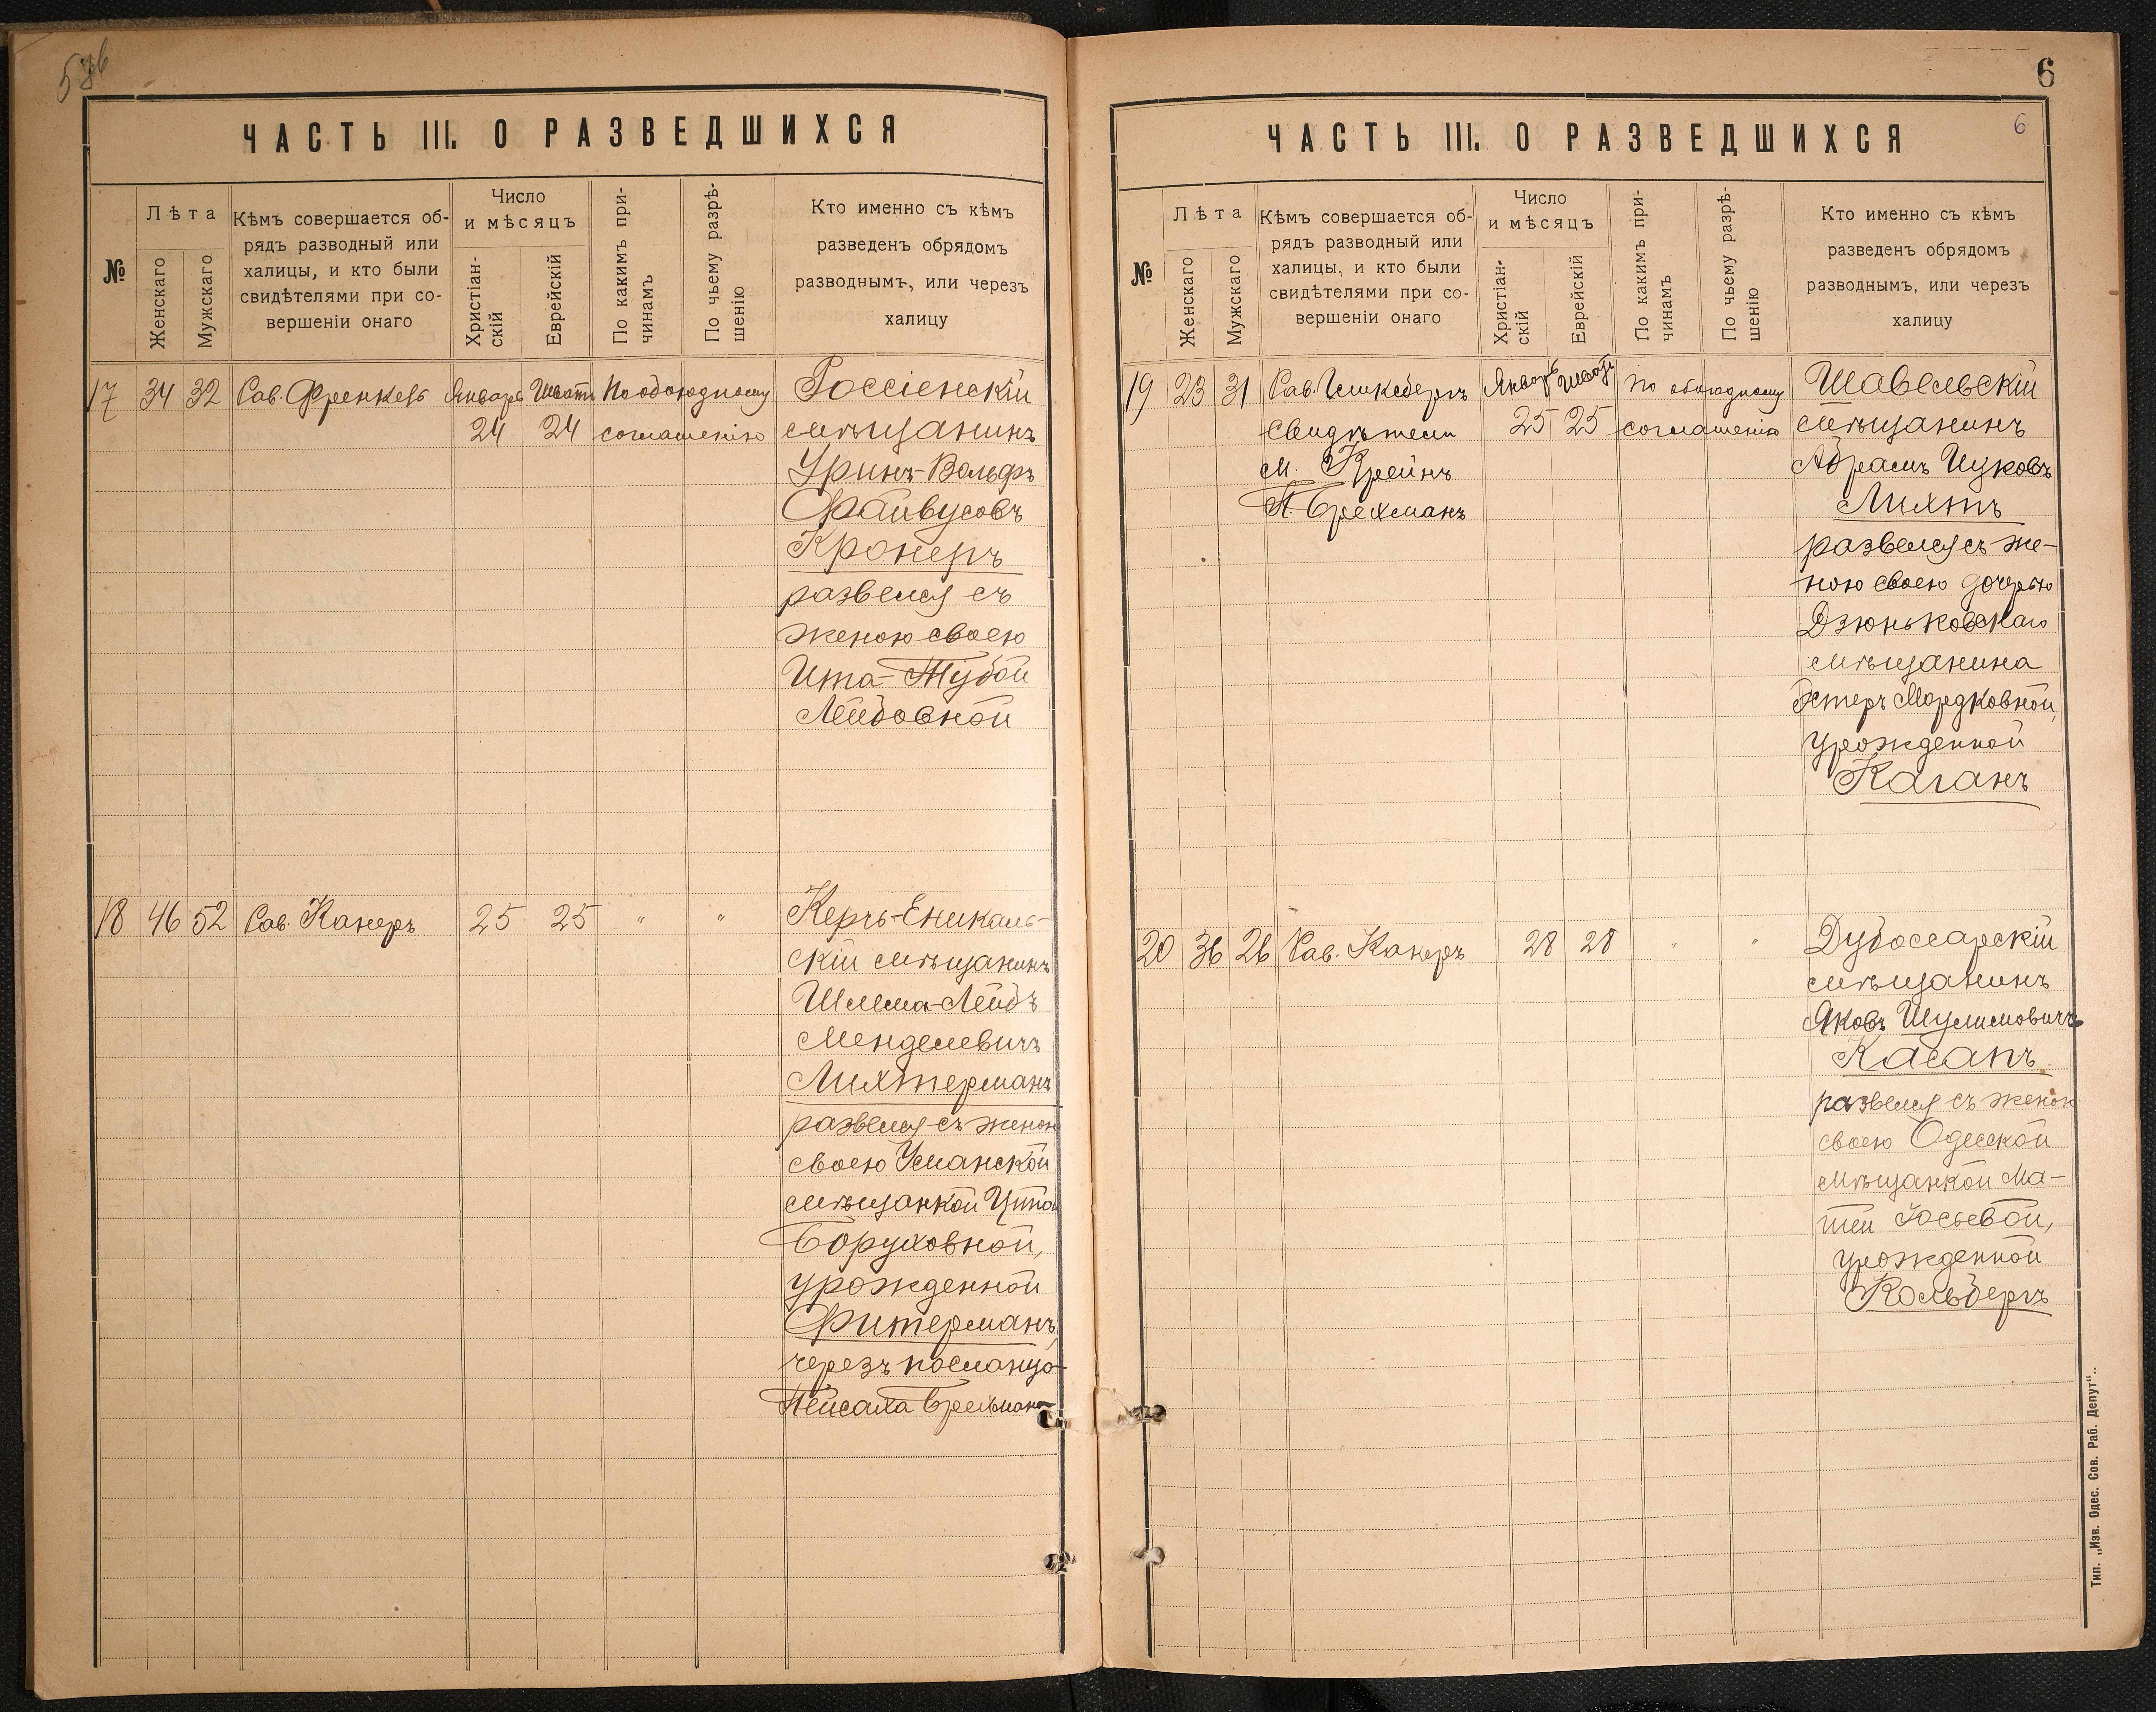 ЧАСТЬ III. О РАЗВЕДШИХСЯ
№
Лѣта
Женскаго
Мужскаго
Кѣмъ совершается об-
рядъ разводный или
халицы, и кто были
свидѣтелями при со-
вершеніи онаго
Число
и мѣсяцъ
Христіан-
скій
Еврейскій
По какимъ при-
чинамъ
По чьему разрѣ-
шенію
Кто именно съ кѣмъ
разведенъ обрядомъ
разводнымъ, или черезъ
халицу
17 34 32 Рав. Френкель Январь Шватъ По обоюдному Россіенскій
24 24 соглашенію мѣщанинъ
Уринъ-Вольфъ
Файвусовъ
Кронеръ
развелся съ
женою своею
Ита-Тубой
Лейбовной
18 46 52 Рав. Канеръ 25 25 " " Керчь-Еникаль-
скій мѣщанинъ
Шлема-Лейбъ
Менделевичъ
Лихтерманъ
развелся съ женою
своею Уманской
мѣщанкой
Боруховной,
урожденной
Фитерманъ,
черезъ посланца
Пейсаха Брехмана
6
6
ЧАСТЬ III. О РАЗВЕДШИХСЯ
№
Лѣта
Женскаго
Мужскаго
Кѣмъ совершается об-
рядъ разводный или
халицы, и кто были
свидѣтелями при со-
вершеніи онаго
Число
и мѣсяцъ
Христіан-
скій
Еврейскій
По какимъ при-
чинамъ
По чьему разрѣ-
шенію
Кто именно съ кѣмъ
разведенъ обрядомъ
разводнымъ, или черезъ
халицу
19 23 31 Рав. Январь Шватъ по обоюдному Шавельскій
свидѣтели 25 25 соглашенію мѣщанинъ
М. Крейнъ Абрамъ Ицковъ
П. Брехманъ Лихтъ
развелся съ же-
ною своею дочерью
Дзюньковскаго
мѣщанина
Эстеръ Мордковной,
урожденной
Каганъ
20 36 26 Рав. Канеръ 28 28 " " Дубоссарскій
мѣщанинъ
Яковъ Шулимовичъ
Касапъ
развелся съ женою
своею Одесской
мѣщанкой Ма-
Іосьевой,
урожденной
Кольбергъ
Тип. „Изв. Одес. Сов. Раб. Депут“.